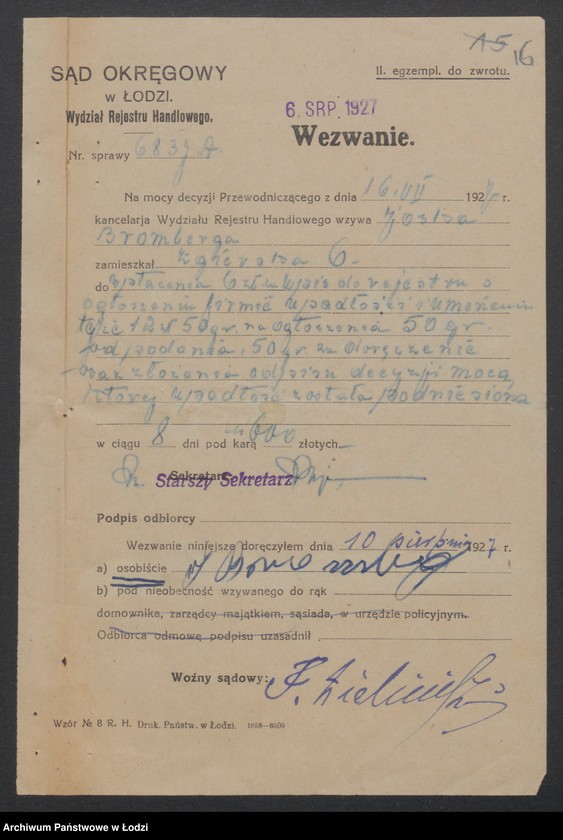 15 16
SĄD OKRĘGOWY
w ŁODZI.
Wydział Rejestru Handlowego.
II. egzempl. do zwrotu.
6. SRP. 1927
Wezwanie.
Nr. sprawy 6837 A.
Na mocy decyzji Przewodniczącego z dnia 16.VII 1927 r.
kancelarja Wydziału Rejestru Handlowego wzywa Joska
Bromberga
zamieszkał Zgierska 6-
do wpłacenia 6 zł za wpis do rejestru o
ogłoszeniu firmie upadłości i umorzeniu
tejże 12 zł 50 gr. na ogłoszenia 50 gr.
od podania, 50 gr za doręczenie
oraz złożenia odpisu decyzji mocą
której upadłość została podniesiona
w ciągu 8 dni pod karą 600 złotych.
Sekretarz
Starszy Sekretarz
Podpis odbiorcy
Wezwanie niniejsze doręczyłem dnia 10 sierpnia 1927 r.
a) osobiście
b) pod nieobecność wzywanego do rąk
domownika, zarządcy majątkiem, sąsiada, w urzędzie policyjnym.
Odbiorca odmowę podpisu uzasadnił
Woźny sądowy:
Wzór № 8 R. H. Druk. Państw. w Łodzi.
Archiwum Państwowe w Łodzi